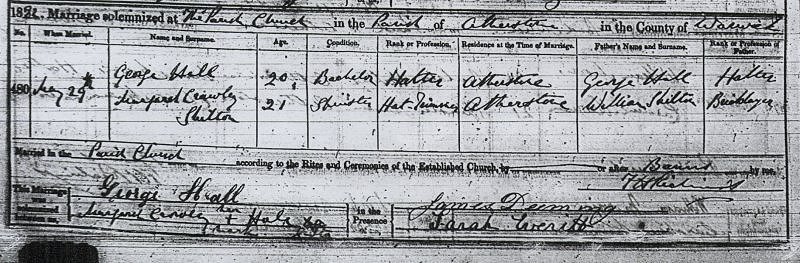 Marriage solemnized at The Parish Church in the Parish of Atherstone in the County of Warwick
No. When Married. Name and Surname. Age. Condition. Rank or Profession. Residence at the Time of Marriage. Father's Name and Surname. Rank or Profession of Father.
480 29th George Hall 20 Bachelor Hatter Atherstone George Hall Hatter
Margaret Crawley 21 Spinster Hat-Trimmer Atherstone William Shilton Bricklayer
Shilton
Married in the Parish Church according to the Rites and Ceremonies of the Established Church, by or after Banns by me,
This Marriage was solemnized between us, George Hall in the Presence of us, James Deeming
Margaret Crawley + Sarah Everitt